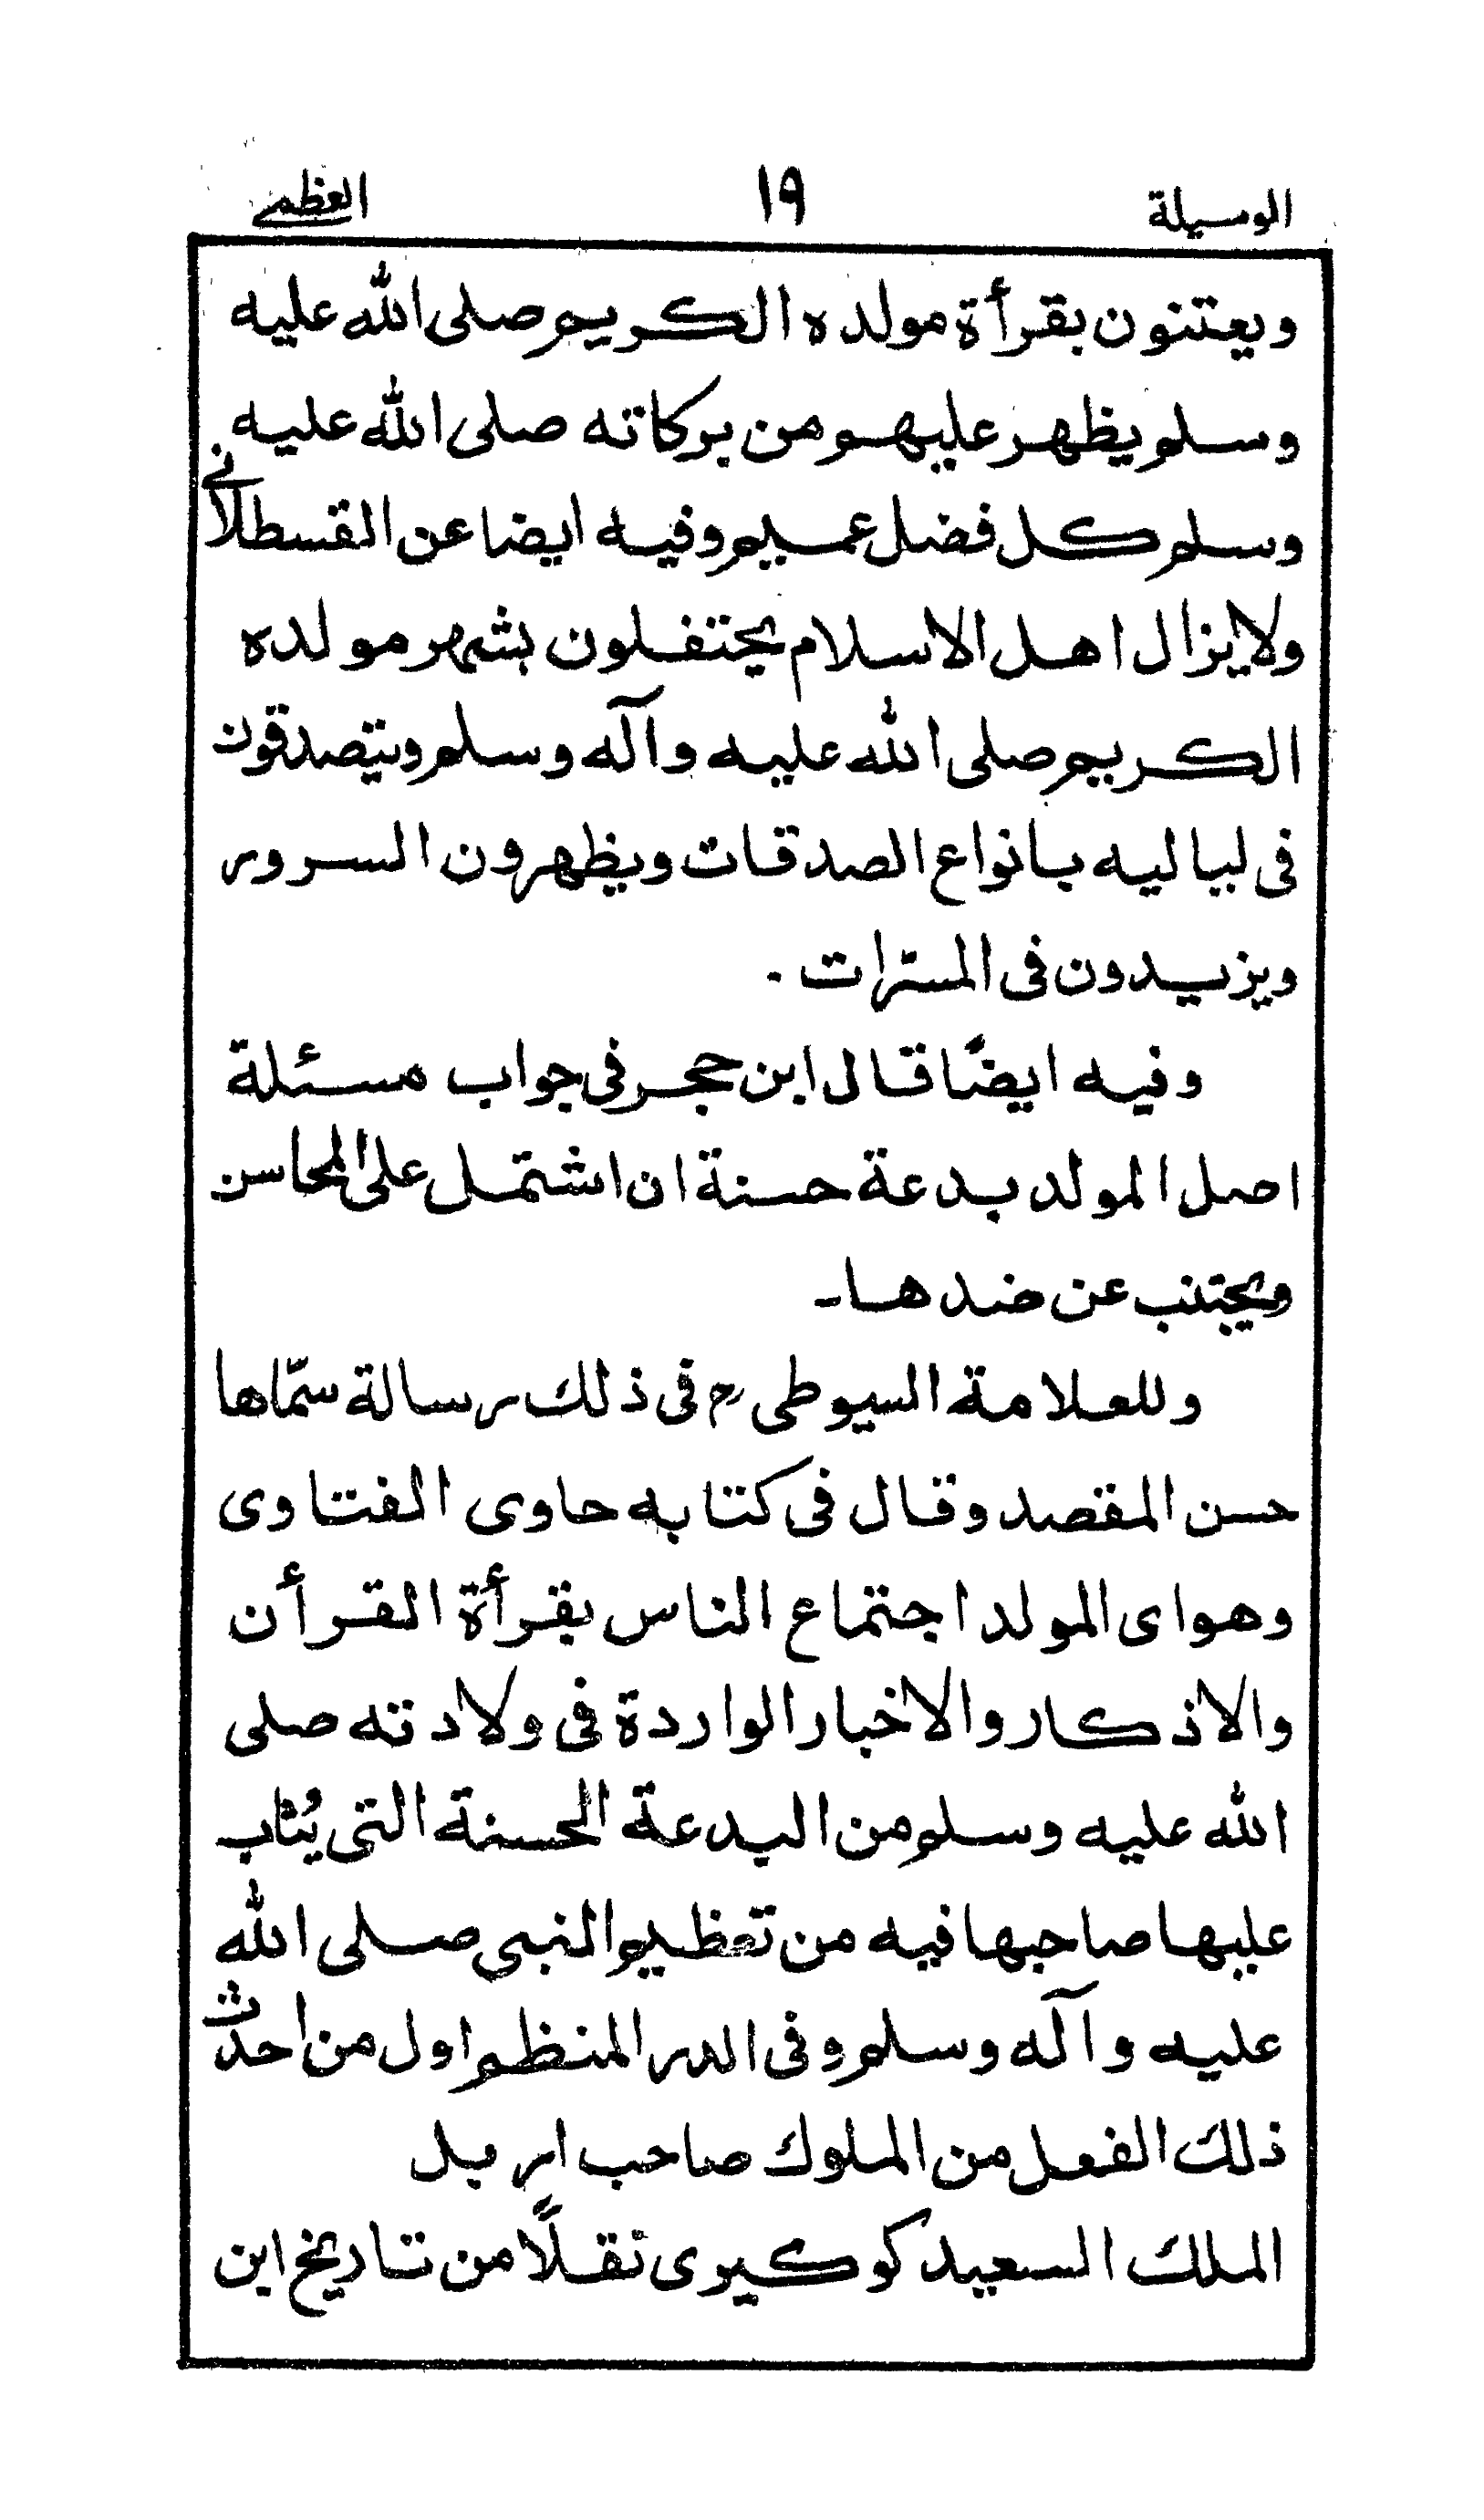 الوسيلة ١٩ العظمى
ويعتنون بقرأة مولده الكريم صلى الله عليه
وسلم يظهر عليهم من بركاته صلى الله عليه
وسلم كل فضل عميم وفيه ايضا عن القسطلانى
ولايزال اهل الاسلام يحتفلون بشهر مولده
الكريم صلى الله عليه وآله وسلم ويتصدقون
فى لياليه بانواع الصدقات ويظهرون السرور
ويزيدون فى المسرّات ۔
وفيه ايضًا قال ابن حجر فى جواب مسئلة
اصل المولد بدعة حسنة ان اشتمل على المحاسن
ويجتنب عن ضدها۔
وللعلامة السيوطىؒ فى ذلك رسالة سمّاها
حسن المقصد وقال فى كتابه حاوى الفتاوى
وهو اى المولد اجتماع الناس بقرأة القرأن
والاذكار والاخبار الواردة فى ولادته صلى
الله عليه وسلم من البدعة الحسنة التى يُثاب
عليها صاحبها فيه من تعظيم النبى صلى الله
عليه وآله وسلم وفى الدر المنظم اول من احدث
ذلك الفعل من الملوك صاحب اربل
الملك السعيد كوكيرى نقلًا من تاريخ ابن